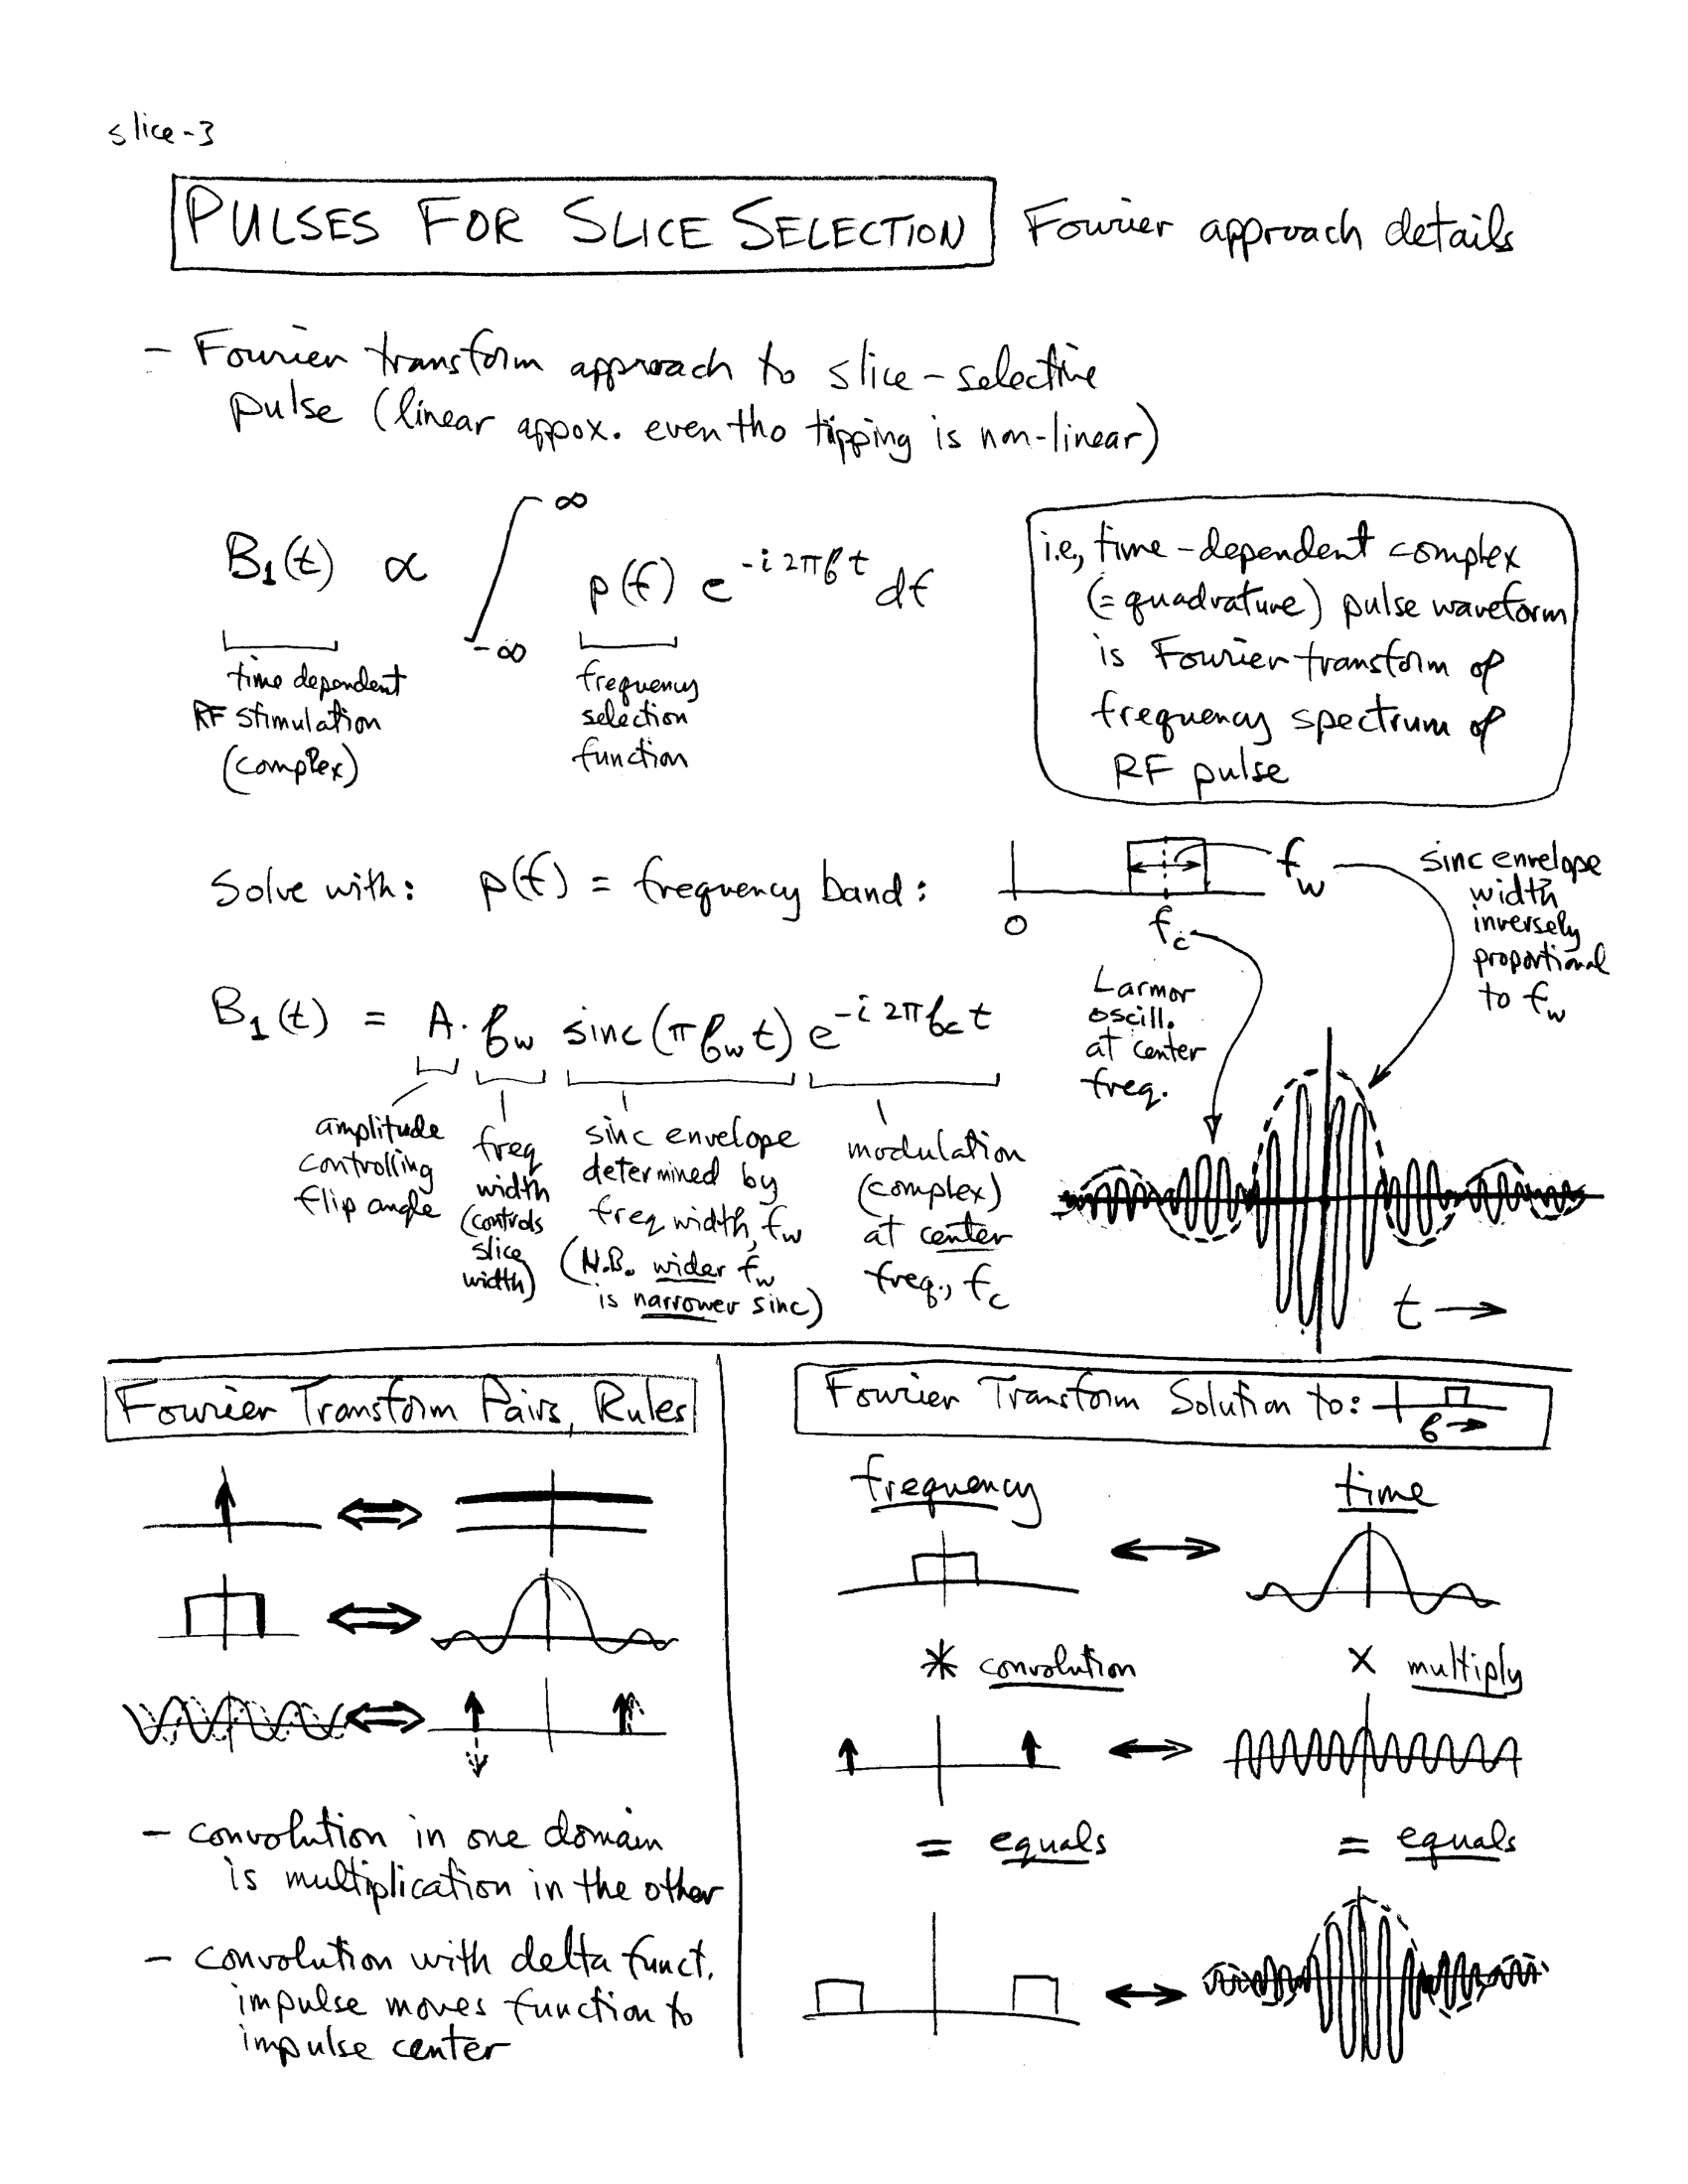 slice-3
PULSES FOR SLICE SELECTION Fourier approach details
- Fourier transform approach to slice-selective
pulse (linear appox. eventho tipping is non-linear)
B₁(t) ∝ ∫ ∞ -∞ p(f) e^{-i2πft} df
time dependent
RF stimulation
(complex)
frequency
selection
function
i.e., time-dependent complex
(=quadrature) pulse waveform
is Fourier transform of
frequency spectrum of
RF pulse
Solve with: p(f) = frequency band:
0
f_c
f_w
sinc envelope
width
inversely
proportional
to f_w
Larmor
oscill.
at center
freq.
B₁(t) = A · f_w sinc(πf_w t) e^{-i2πf_c t}
amplitude
controlling
flip angle
freq
width
(controls
slice
width)
sinc envelope
determined by
freq width, f_w
(N.B. wider f_w
is narrower sinc)
modulation
(complex)
at center
freq., f_c
t →
Fourier Transform Pairs, Rules
- convolution in one domain
is multiplication in the other
- convolution with delta funct.
impulse moves function to
impulse center
Fourier Transform Solution to:
f →
frequency ⟷ time
* convolution × multiply
= equals = equals